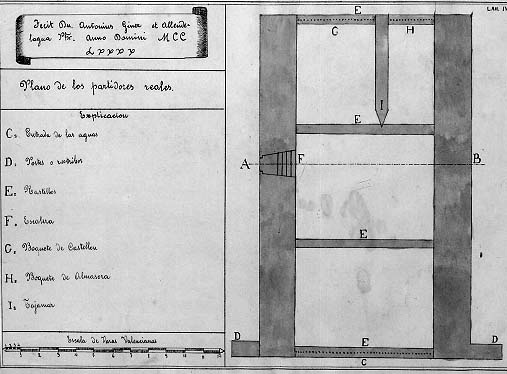 Fecit Dn. Antonius Giner et Allende-
lagua Ptr. Anno Domini MCC
LXXXX
Plano de los partidores reales.
Explicacion
C. Entrada de las aguas
D. Portes o estribos
E. Rastillos
F. Escalera
G. Boquete de Castellon
H. Boquete de Almasora
I. Tajamar
Escala de Varas Valencianas
LAM. IV
E
G
H
I
E
A
F
B
E
D
E
C
D